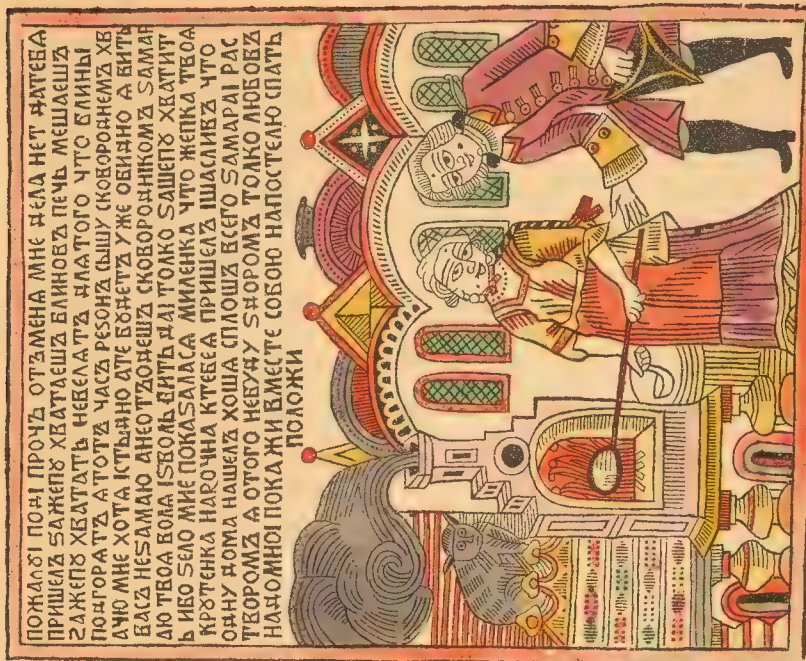 ПОЖАЛУI ПОДI ПРОЧЬ ОТЪМЕНА МНЕ ДЕЛА НЕТ ДАТЕБА
ПРИШЕЛЪ ЅАЖЕПꙊ ХВАТАЕШЪ БЛИНОВЪ ПЕЧЬ МЕШАЕШЪ
ZАЖЕПꙊ ХВАТАТЬ НЕВЕЛАТЪ ДЛАТОГО ЧТО БЛИНЫ
ПОДГОРАТЪ АТОТЪ ЧАСЪ РЕЅОНЪ СЫЩУ СКОВОРОДНЕМЪ ХВ
АЧЮ МНЕ ХОТА IСТЬДНО АТЕ БꙊДЕТЪ УЖЕ ОБИДНО А БИТЬ
ВАСЪ НЕЅАМАЮ АНЕОТЪОДЕШЪ СКОВОРОДНIКОМЪ ЅАМАР
АЮ ТВОА ВОЛА IЅВОЛЬ БИТЬ ДАI ТОЛКО ЅАЩЕПꙊ ХВАТИТ
Ь ИБО ЅЕЛО МНЕ ПОКАЅАЛАСА МИЛЕНКА ЧТО ЖЕПКА ТВОА
КРꙊТЕНКА НАРОЧНА КТЕБЕА ПРИШЕЛЪ IЩАСЛИВЪ ЧТО
ОДНУ ДОМА НАШЕЛЪ ХОША СПЛОШЪ ВСЕГО ЅАМАРАI РАС
ТВОРОМЪ А ОТОГО НЕБУДУ ЅДОРОМЪ ТОЛКО ЛЮБОВЪ
НАДОМНОI ПОКАЖИ ВМЕСТЕ СОБОЮ НАПОСТЕЛЮ СПАТЬ
ПОЛОЖИ